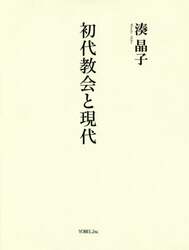 湊 晶子
初代教会と現代
YOBEL,Inc.